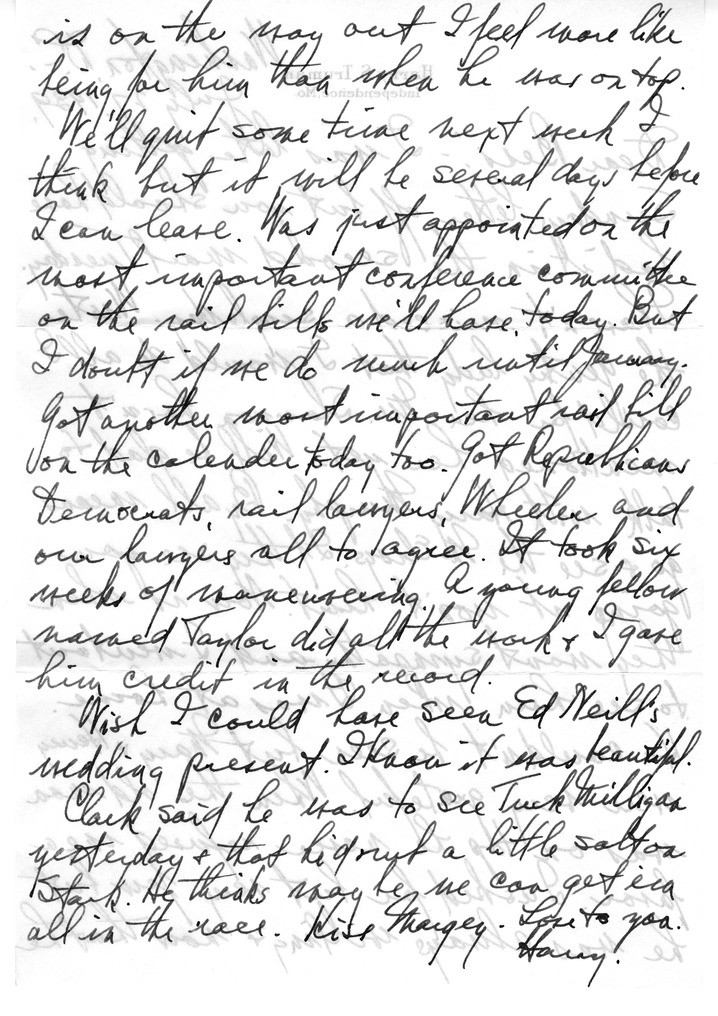 is on the way out I feel more like
being for him than when he was on top.
We'll quit some time next week I
think but it will be several days before
I can leave. Was just appointed on the
most important conference committee
on the rail bills we'll have today. But
I doubt if we do much until January.
Got another most important rail bill
on the calender today too. Got Republicans
Democrats, rail lawyers, Wheeler and
our lawyers all to agree. It took six
weeks of maneuvering. A young fellow
named Taylor did all the work & I gave
him credit in the record.
Wish I could have seen Ed Neill's
wedding present. I know it was beautiful.
Clark said he was to see Tuck Milligan
yesterday & that he'd rub a little salt on
Stark. He thinks maybe we can get em
all in the race. Kiss Margey. Love to you.
Harry.